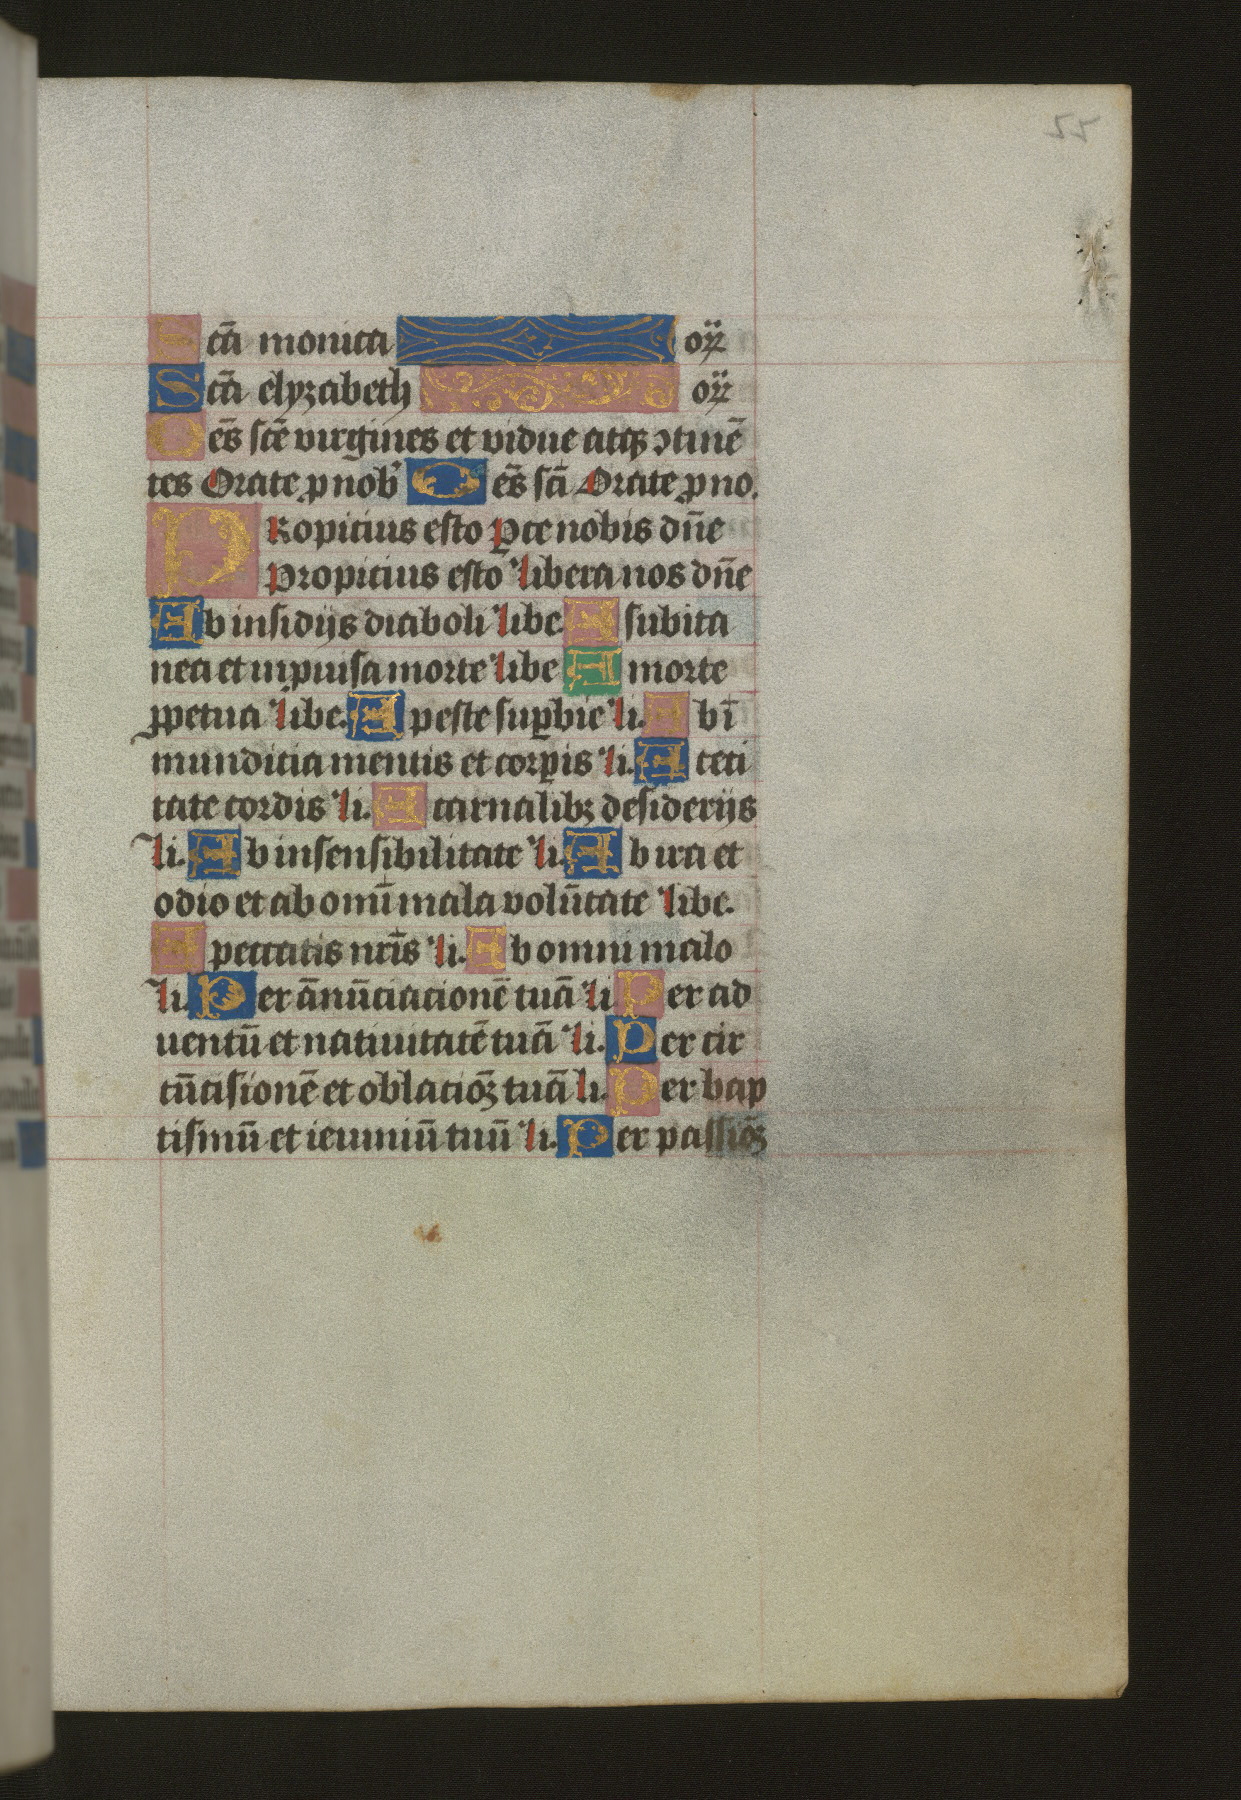 55
Scā monica or̄
Scā elyzabeth or̄
Oēs scē virgines et vidue atqꝫ ꝯtinē
tes Orate ꝓ nob̓ Oēs scī Orate ꝓ no.
Propicius esto ꝑce nobis dn̄e
Propicius esto libera nos dn̄e
Ab insidijs diaboli libe. A subita
nea et inpͥuisa morte libe A morte
ꝑpetua libe. A peste suꝑbie li. Ab ī
mundicia mentis et corꝑis li. A ceci
tate cordis li. A carnalibꝫ desiderijs
li. Ab insensibilitate li. Ab ira et
odio et ab omī mala volūtate libe.
A peccatis nr̄is li. Ab omni malo
li. Per ānūciacionē tuā li Per ad
uentū et natiuitatē tuā li. Per cir
cūcisionē et oblacioꝫ tuā li. Per bap
tismū et ieiuniū tuū li. Per passioꝫ